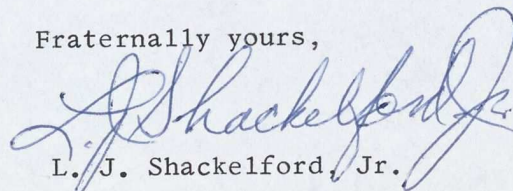 Fraternally yours,
L. J. Shackelford Jr.
L. J. Shackelford, Jr.